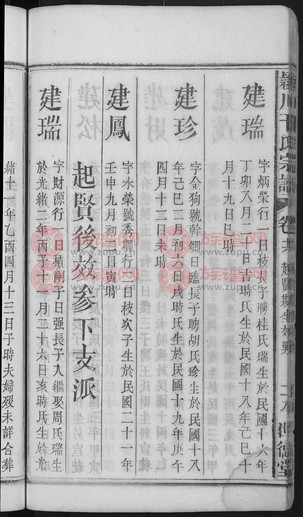 建瑞
字炳榮行 日枝長子聘桂氏瑞生於民國十六年
丁卯八月二十日吉時氏生於民國十八年己巳十
月十九日巳時
建珍
字金狗號幹卿日 長子聘胡氏珍生於民國十八
年己巳二月初六日戌時氏生於民國十九年庚午
四月十二日未時
建鳳
字永榮號秀 日枝次子生於民國二十一年
壬申九月初 日寅時
起賢後效參下支派
建瑞
字財源行 日 嗣子日強長子入繼娶周氏瑞生
於光緒二年丙子三月二十六日亥時氏生於光
緒十一年乙酉四月十三日子時夫婦歿未詳合葬
川干氏宗譜 卷
德堂